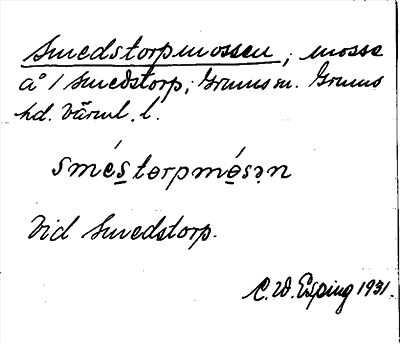 Smedstorpmossen, mosse
å 1 Smedstorp, Grums sn. Grums
hd. Värml. l.
smés̲tɵrpmó̲sən
Vid Smedstorp.
C. W. Esping 1931.